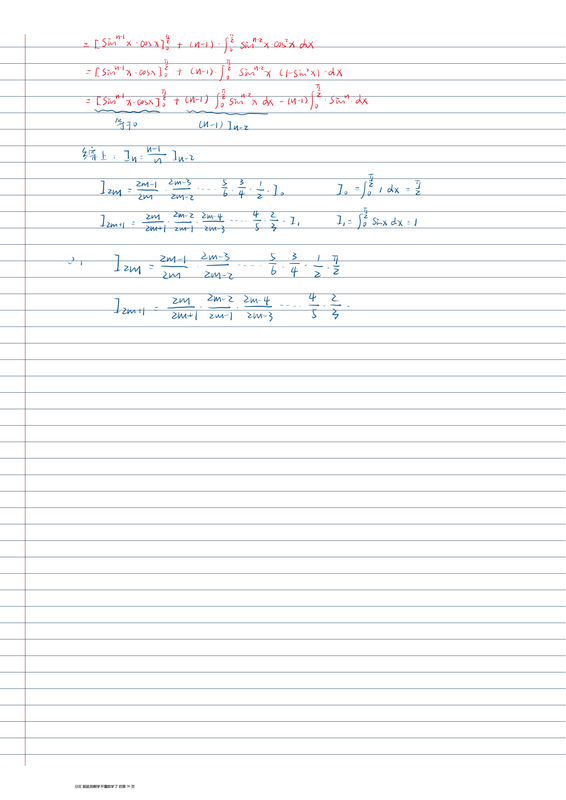 = [Sin^{n-1} x · cosx]_0^{π/2} + (n-1) · ∫_0^{π/2} Sin^{n-2} x · cos²x dx
= [Sin^{n-1} x · cosx]_0^{π/2} + (n-1) · ∫_0^{π/2} · Sin^{n-2} x (1-Sin²x) · dx
= [Sin^{n-1} x · cosx]_0^{π/2} + (n-1) ∫_0^{π/2} Sin^{n-2} x dx - (n-1) ∫_0^{π/2} · Sin^n · dx
等于0 (n-1) I_{n-2}
综上: I_n = \frac{n-1}{n} I_{n-2}
I_{2m} = \frac{2m-1}{2m} · \frac{2m-3}{2m-2} ····· \frac{5}{6} · \frac{3}{4} · \frac{1}{2} · I_0 I_0 = ∫_0^{π/2} 1 dx = \frac{π}{2}
I_{2m+1} = \frac{2m}{2m+1} · \frac{2m-2}{2m-1} · \frac{2m-4}{2m-3} ····· \frac{4}{5} · \frac{2}{3} · I_1 I_1 = ∫_0^{π/2} Sinx dx = 1
I_{2m} = \frac{2m-1}{2m} · \frac{2m-3}{2m-2} ····· \frac{5}{6} · \frac{3}{4} · \frac{1}{2} · \frac{π}{2}
I_{2m+1} = \frac{2m}{2m+1} · \frac{2m-2}{2m-1} · \frac{2m-4}{2m-3} ····· \frac{4}{5} · \frac{2}{3} ·